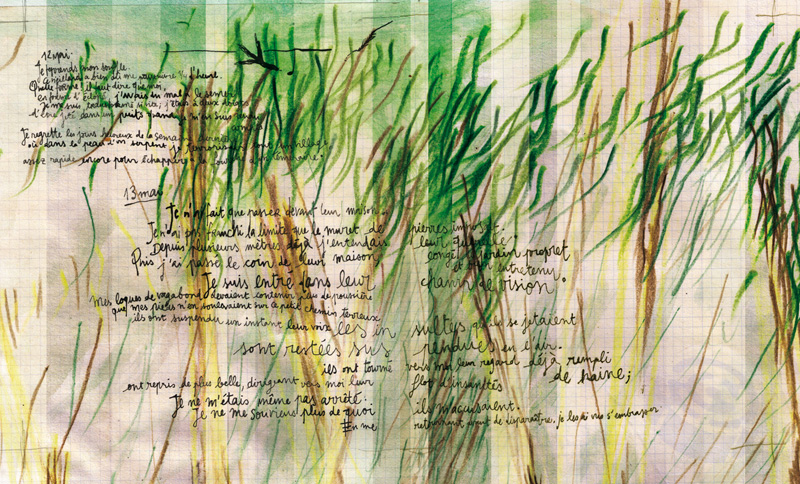 12 mai.
Je reprends mon souffle.
Quelle forme ! il faut dire que moi,
d'être jeté dans un puits quand je n'en suis
Je regrette les jours heureux de la semaine dernière
où dans la peau d'un serpent je terrorisais tout un village,
assez rapide encore pour échapper à
13 mai
Je n'ai fait que passer devant leur maison.
Je n'ai pas franchi la limite que le muret de pierres impose.
Depuis plusieurs mètres déjà j'entendais leur querelle.
Puis j'ai passé le coin de leur maison, jardin propret
et bien entretenu
Je suis entré dans leur champ de vision.
Mes loques de vagabond devaient contenir plus de poussière
que mes pieds n'en soulevaient sur le petit chemin terreux
ils ont suspendu un instant leur voix les insultes qu'ils se jetaient
sont restées suspendues en l'air.
ils ont tourné vers moi leur regard déjà rempli de haine;
ont repris de plus belle, dirigeant vers moi leur flot d'insanités
Je ne m'étais même pas arrêté.
Je ne me souviens plus de quoi ils m'accusaient.
En me retournant avant de disparaître, je les ai vus s'embrasser